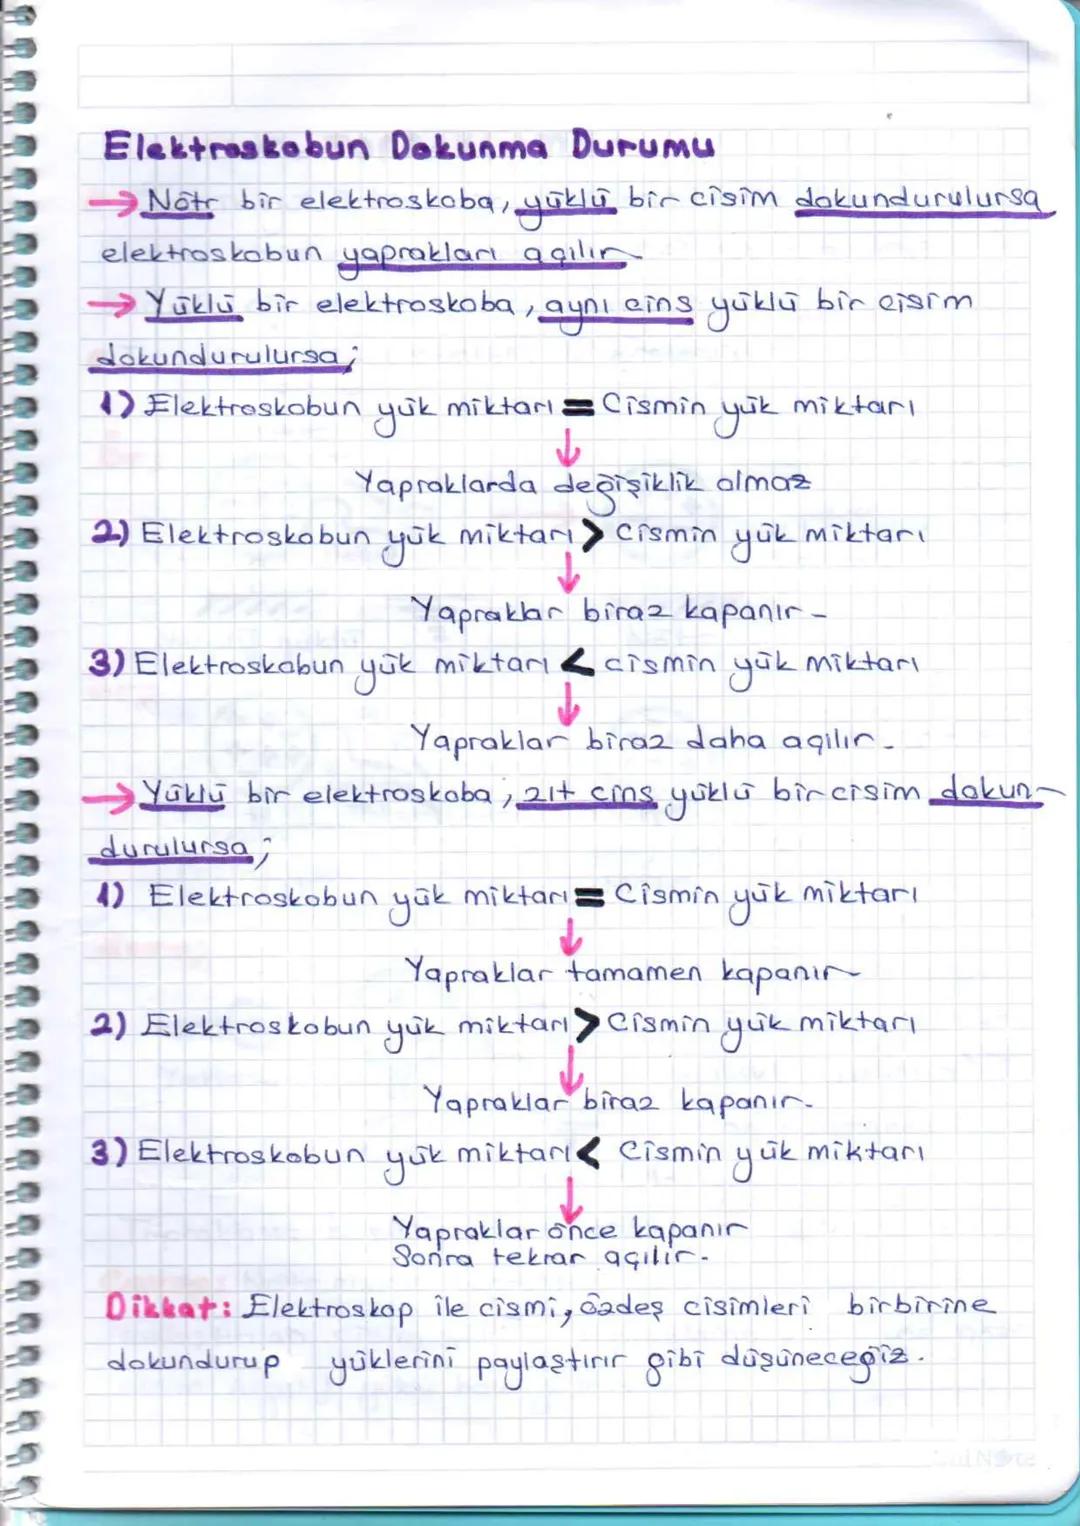 Elektroskobun Dokunma Durumu
→ Nötr bir elektroskoba, yüklü bir cisim dokundurulursa
elektroskobun yaprakları açılır
→ Yüklü bir elektroskoba, aynı cins yüklü bir cisim
dokundurulursa;
1) Elektroskobun yük miktarı = Cismin yük miktarı
↓
Yapraklarda değişiklik olmaz
2) Elektroskobun yük miktarı > Cismin yük miktarı
↓
Yapraklar biraz kapanır-
3) Elektroskobun yük miktarı < cismin yük miktarı
↓
Yapraklar biraz daha açılır.
→ Yüklü bir elektroskoba, zıt cins yüklü bir cisim dokun-
durulursa;
1) Elektroskobun yük miktarı = Cismin yük miktarı
↓
Yapraklar tamamen kapanır
2) Elektroskobun yük miktarı > Cismin yük miktarı
↓
Yapraklar biraz kapanır.
3) Elektroskobun yük miktarı < Cismin yük miktarı
↓
Yapraklar önce kapanır
Sonra tekrar açılır.
Dikkat: Elektroskop ile cismi, özdeş cisimleri birbirine
dokundurup yüklerini paylaştırır gibi düşüneceğiz.